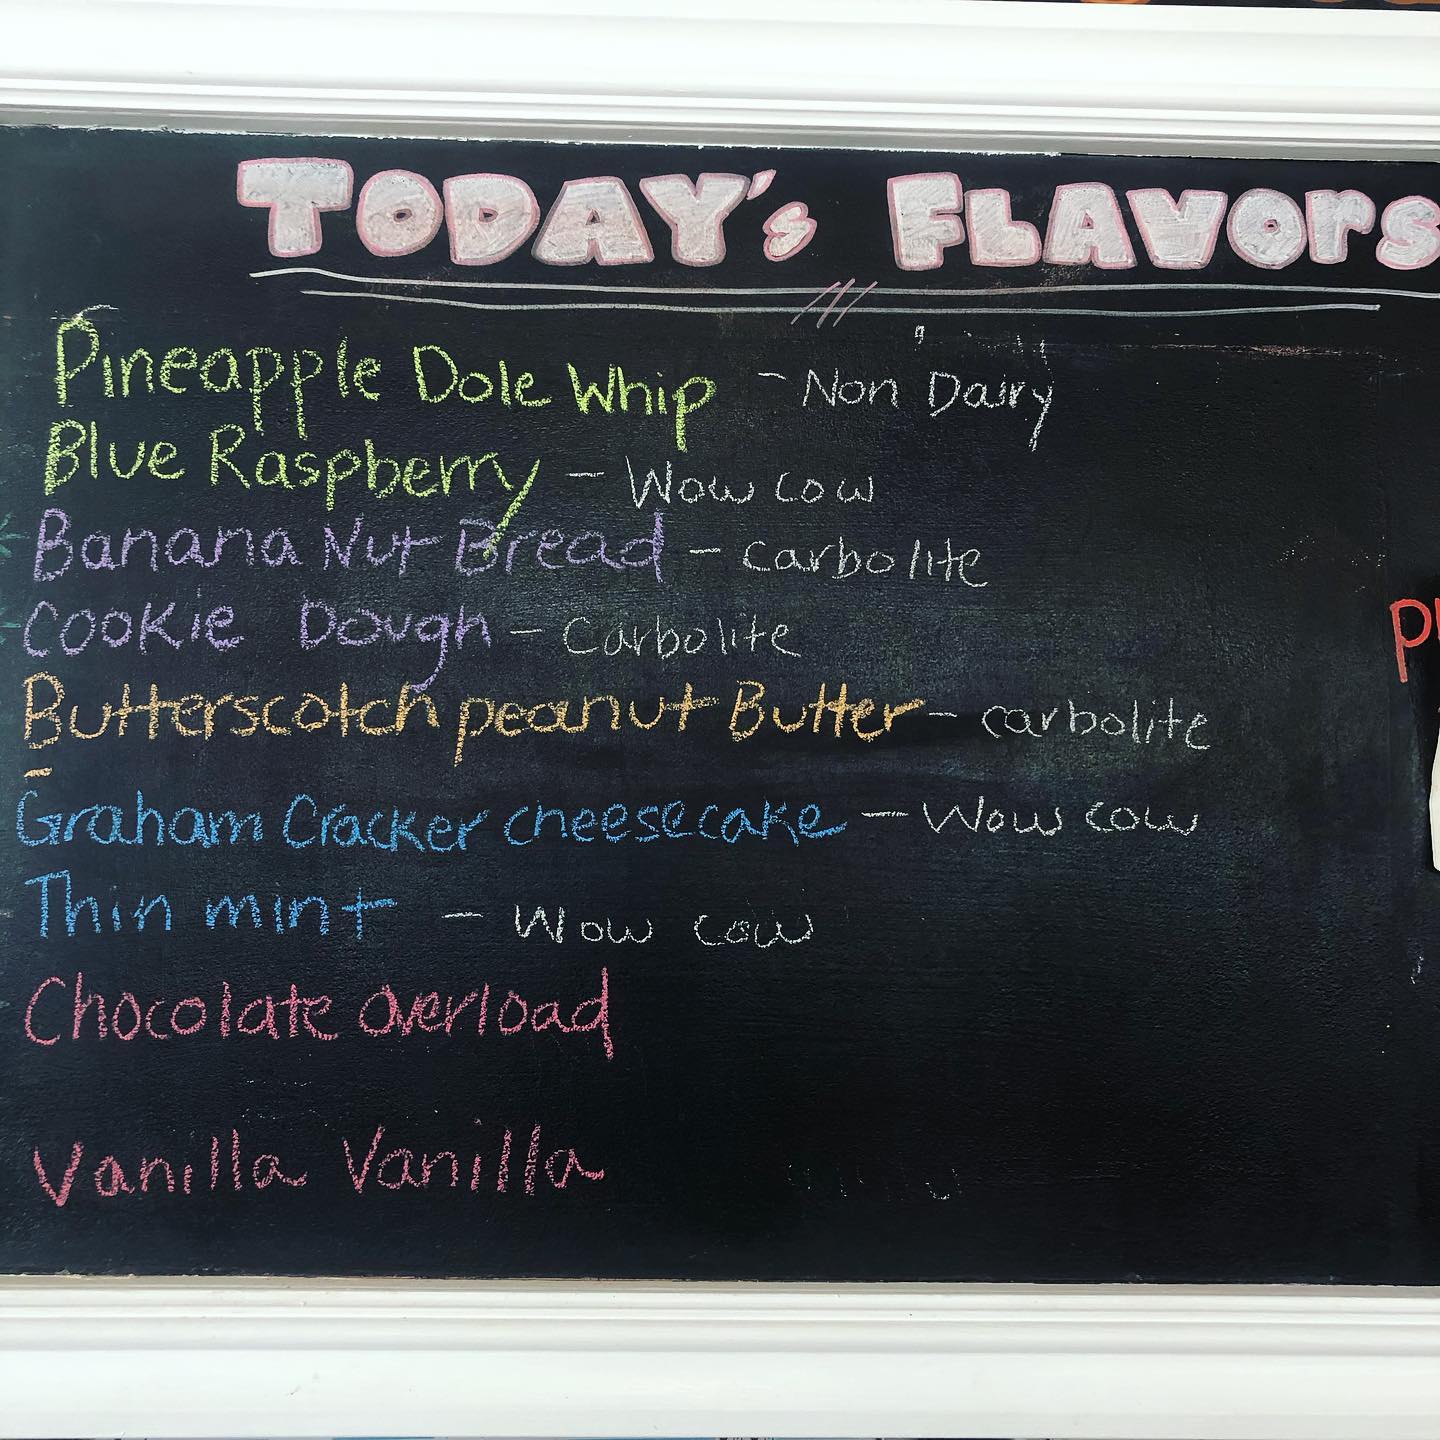 TODAY's FLAVors
Pineapple Dole Whip - Non Dairy
Blue Raspberry - Wow cow
Banana Nut Bread - carbolite
Cookie Dough - Carbolite
Butterscotch peanut Butter - carbolite
Graham Cracker cheesecake - Wow cow
Thin mint - Wow cow
Chocolate overload
Vanilla Vanilla